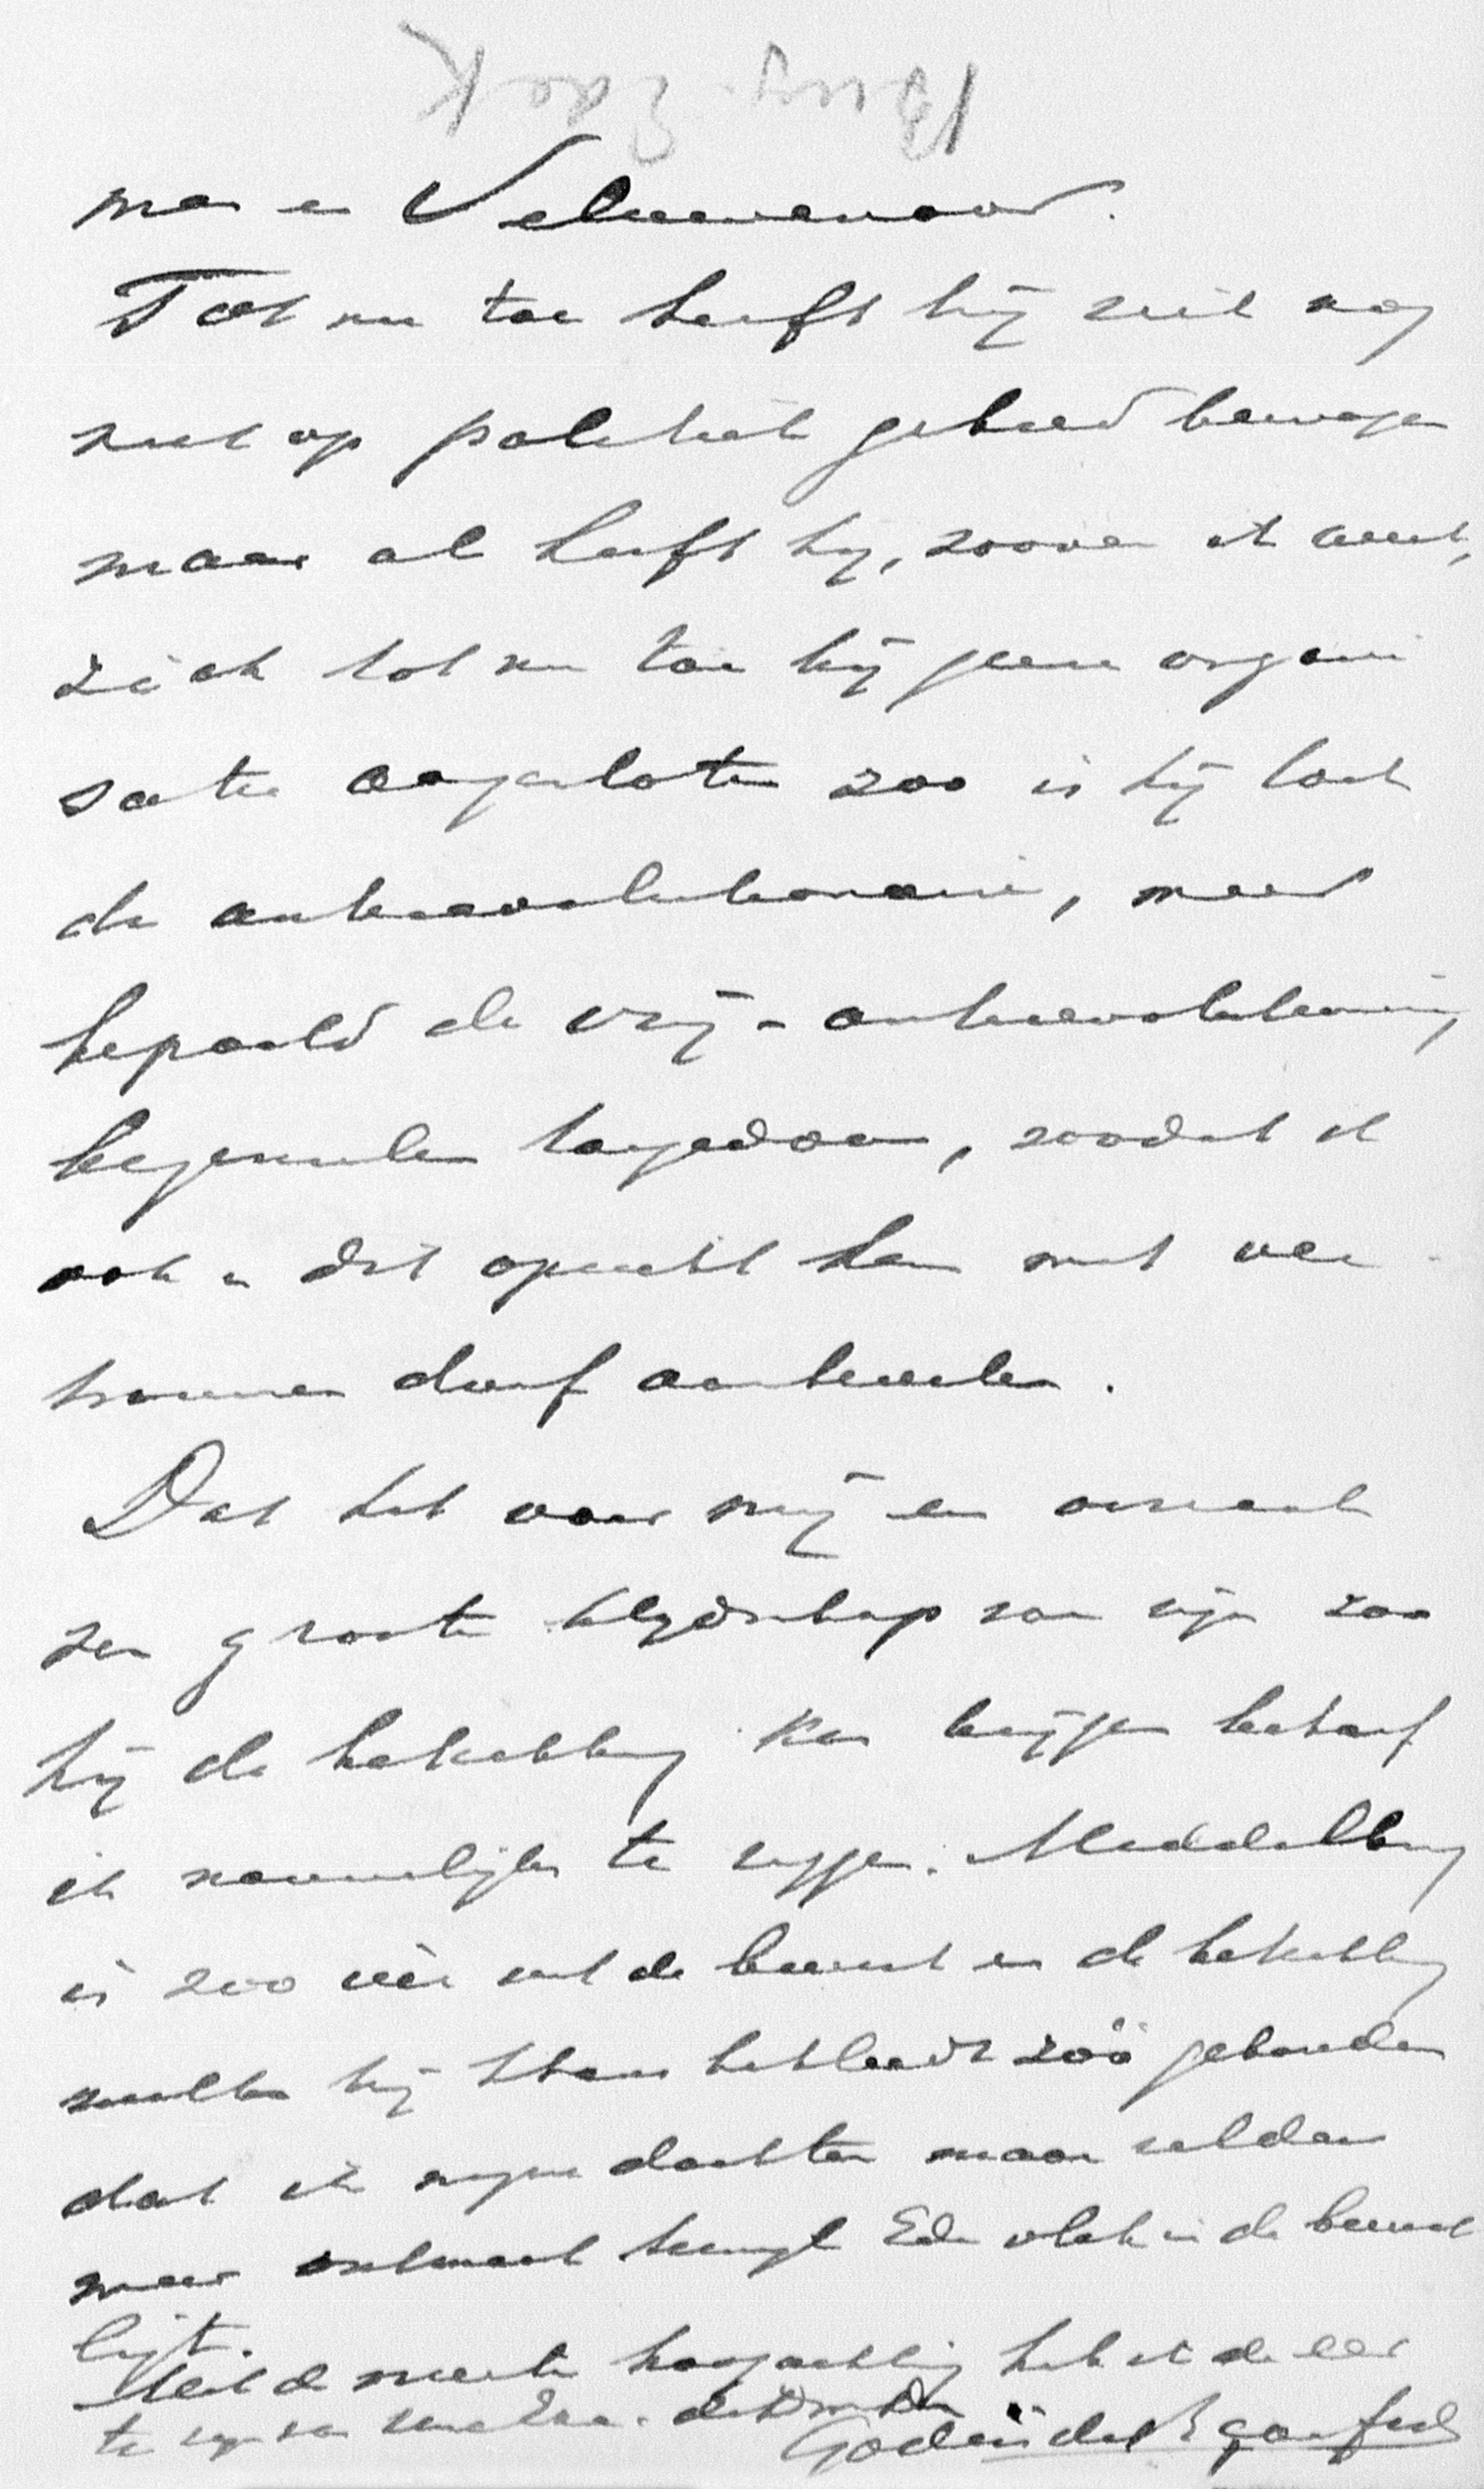 Burg. Ede K
man en Veluwenaar.
Tot nu toe heeft hij zich nog
niet op politiek gebied bewogen
maar al heeft hij, zoover ik weet,
zich tot nu toe bij geene organi
satie aangesloten zoo is hij toch
de antirevolutionaire, meer
bepaald de vrij-antirevolutionaire,
beginselen toegedaan, zoodat ik
ook in dit opzicht hem met ver
trouwen durf aanbevelen.
Dat het voor mij een oorzaak
zou groote blijdschap zou zijn zoo
hij de betrekking kan krijgen behoef
ik nauwelijks te zeggen. Middelburg
is zoo vèr uit de buurt en de betrekking
welke hij thans bekleedt zoo gebonden
dat ik mijne dochter maar zelden
meer ontmoet terwijl Ede vlak in de buurt
ligt.
Met de meeste hoogachting heb ik de eer
te zijn van Uwe